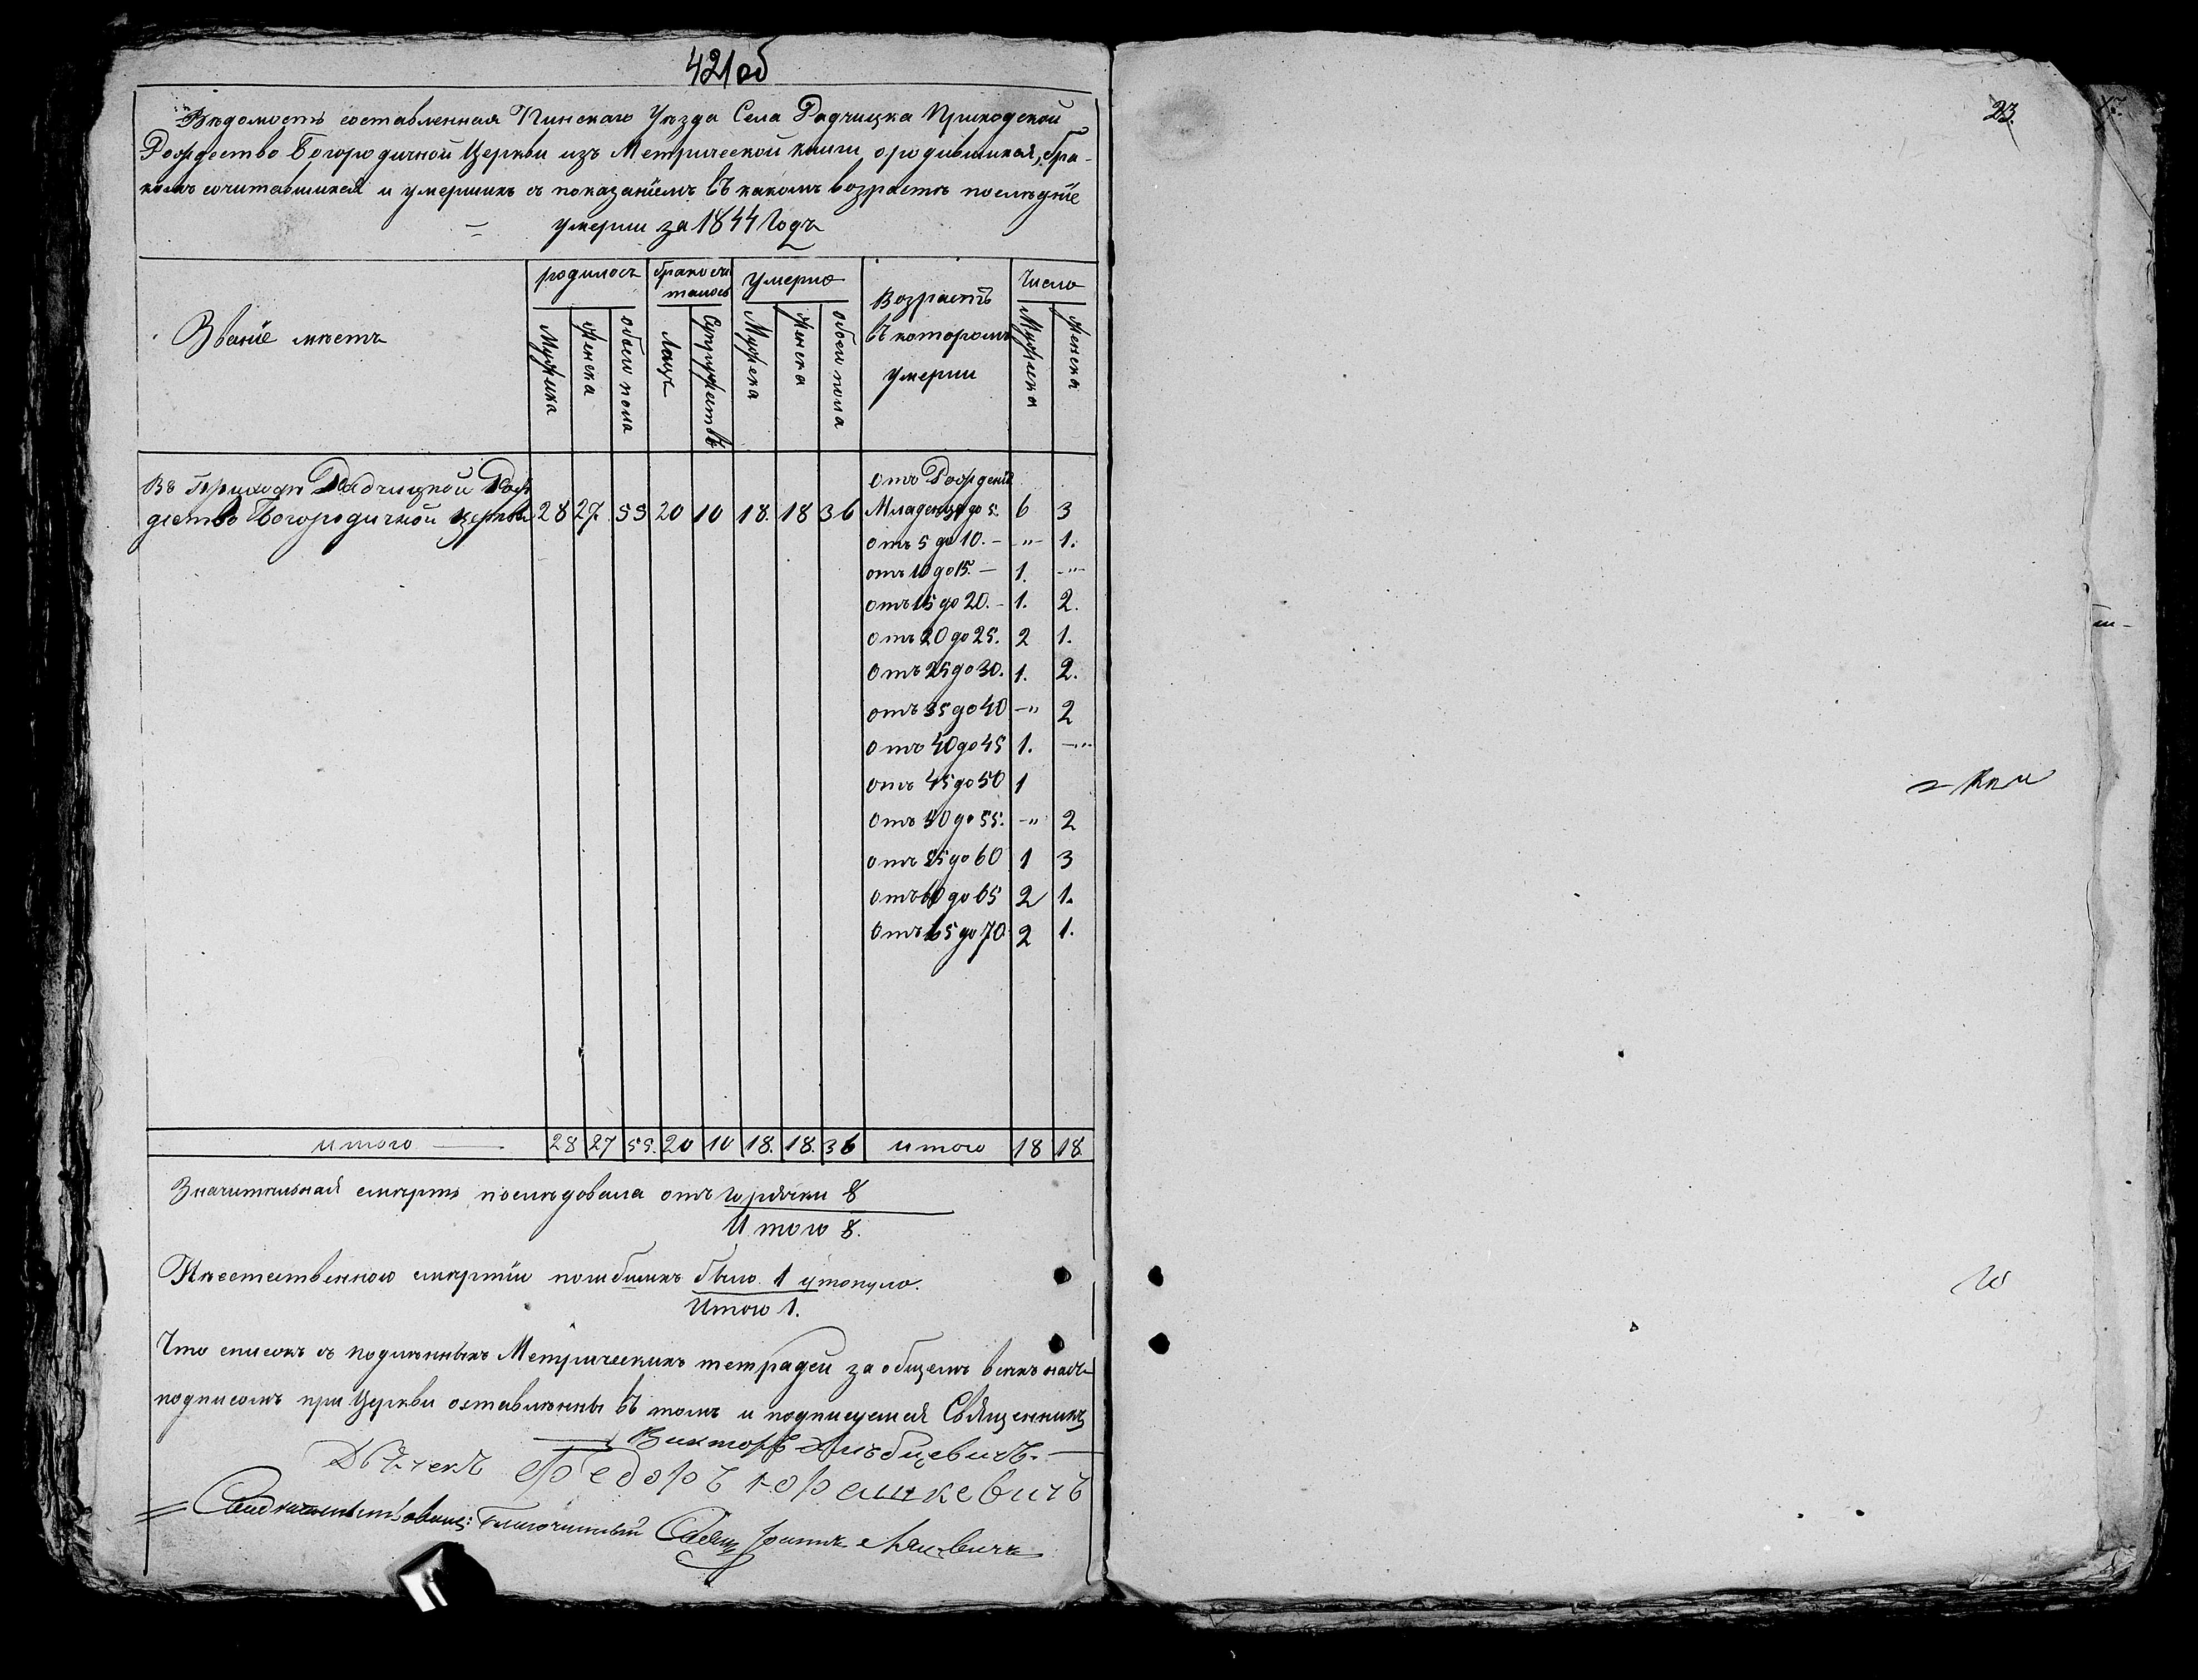 421об
Вѣдомость составленная Пинскаго Уѣзда Села Радчицка Приходской
Рождество Богородичной Церкви изъ Метрической книги, о родившихся, бра-
комъ сочитавшихся и умершихъ съ показанїемъ въ какомъ возрастѣ послѣднїе
умерли за 1844 Годъ
Званїе мѣстъ
родилось
бракосо
талось
умерло
Возрастъ
въ которомъ
умерли
Число
Мужска
Женска
обоего пола
Лицъ
Супружествъ
Мужска
Женска
обоего пола
Мужска
Женска
Въ Приходѣ Радчицкой Рож
дество Богородичной Церкви 28 27. 55 20 10 18. 18 36
отъ Рожденїя
Младенца до 5. 6 3
отъ 5 до 10. — -"- 1.
отъ 10 до 15. — 1. -"-
отъ 15 до 20. - 1. 2.
отъ 20 до 25. 2 1.
отъ 25 до 30. 1. 2.
отъ 35 до 40 -" 2
отъ 40 до 45 1. -"-
отъ 45 до 50 1
отъ 50 до 55. -" 2
отъ 55 до 60 1 3
отъ 60 до 65 2 1.
отъ 65 до 70 2 1.
итого 28 27 55. 20 10 18. 18. 36 итого 18 18
Значительная смерть послѣдовала отъ горячки 8
Итого 8.
Неестественною смертїю погибшихъ было 1 утонуло.
Итого 1.
Что списокъ съ подлинныхъ Метрическихъ тетрадей за общемъ всѣхъ насъ
подписомъ при Церкви оставленны въ томъ и подписуемся Священникъ
Викторъ Хлѣбцевичъ.
Дьячекъ Федоръ Горашкевичъ
Благочинный Свящ Iоаннъ
23.
го